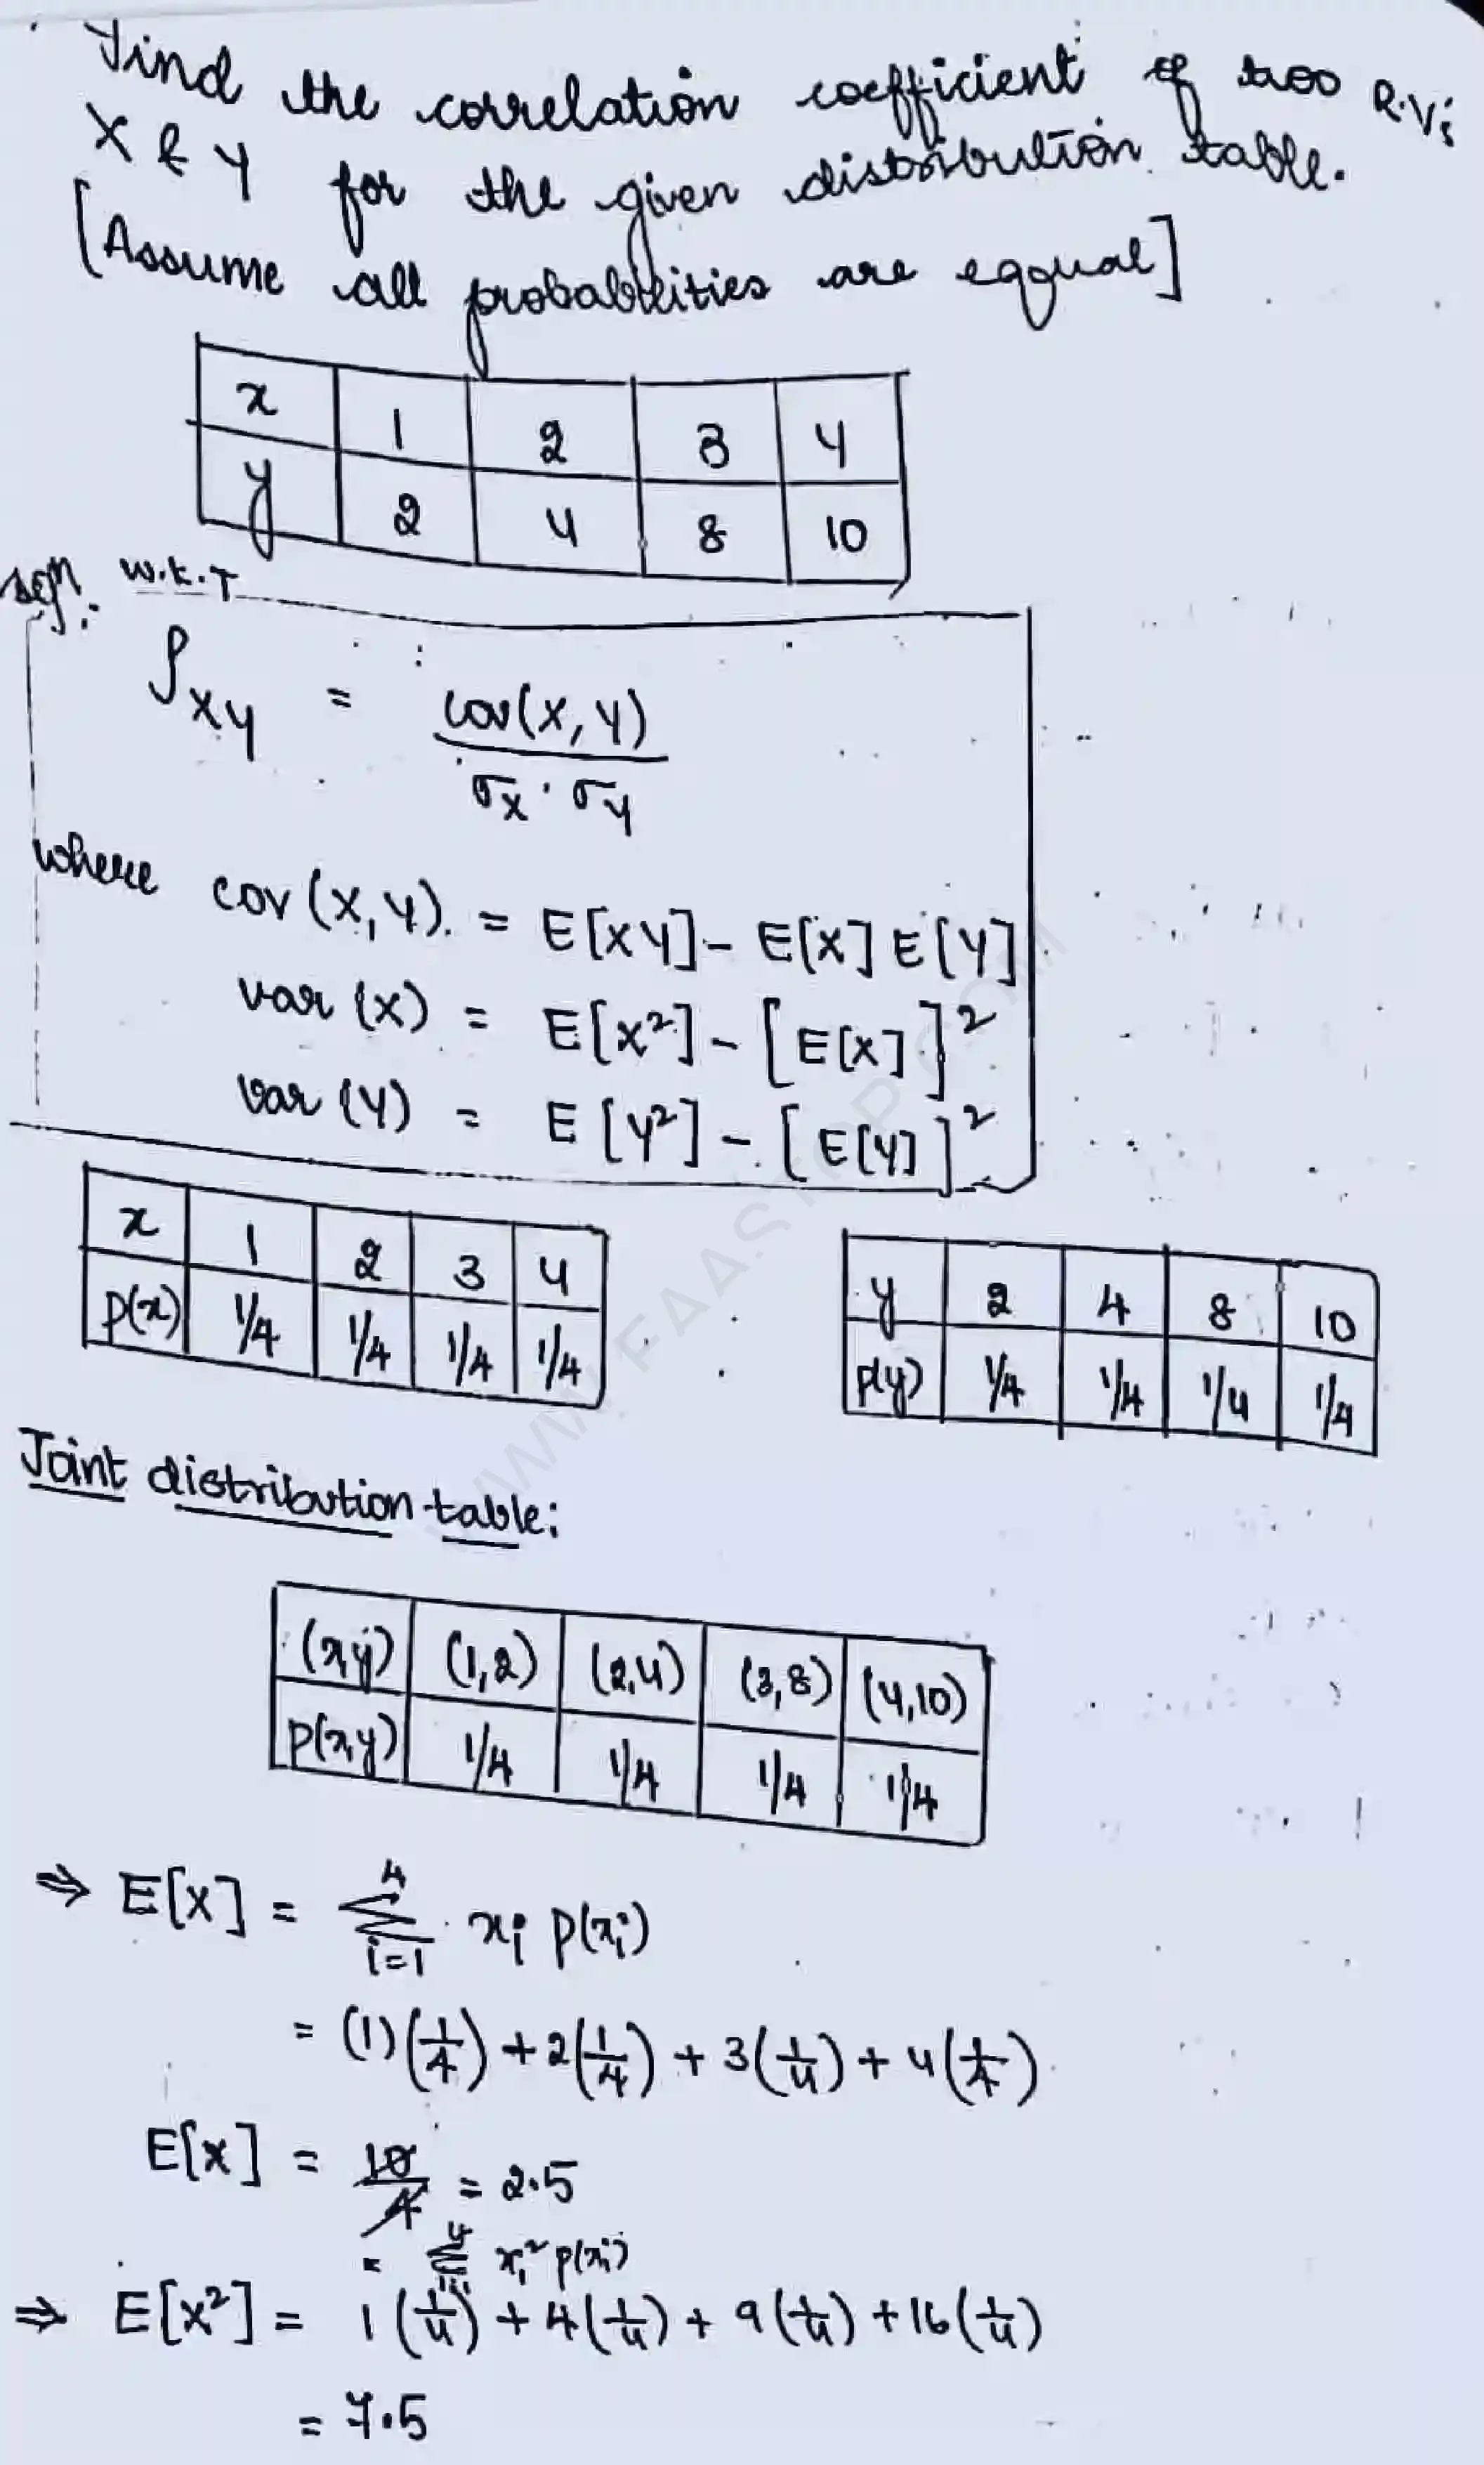 Find the correlation coefficient of two R.Vs
X & Y for the given distribution table.
[Assume all probabilities are eqqual]
x 1 2 3 4
y 2 4 8 10
soln: W.K.T
ρXY = cov(X,Y) / σX · σY
where cov(X,Y) = E[XY] - E[X] E[Y]
var(X) = E[X²] - [E[X]]²
var(Y) = E[Y²] - [E[Y]]²
x 1 2 3 4
p(x) 1/4 1/4 1/4 1/4
y 2 4 8 10
p(y) 1/4 1/4 1/4 1/4
Joint distribution table:
(x,y) (1,2) (2,4) (3,8) (4,10)
p(x,y) 1/4 1/4 1/4 1/4
⇒ E[X] = 4 Σ i=1 xi p(xi)
= (1)(1/4) + 2(1/4) + 3(1/4) + 4(1/4)
E[X] = 10/4 = 2.5
= 4 Σ i=1 xi² p(xi)
⇒ E[X²] = 1(1/4) + 4(1/4) + 9(1/4) + 16(1/4)
= 7.5
WWW.FAASTOP.COM